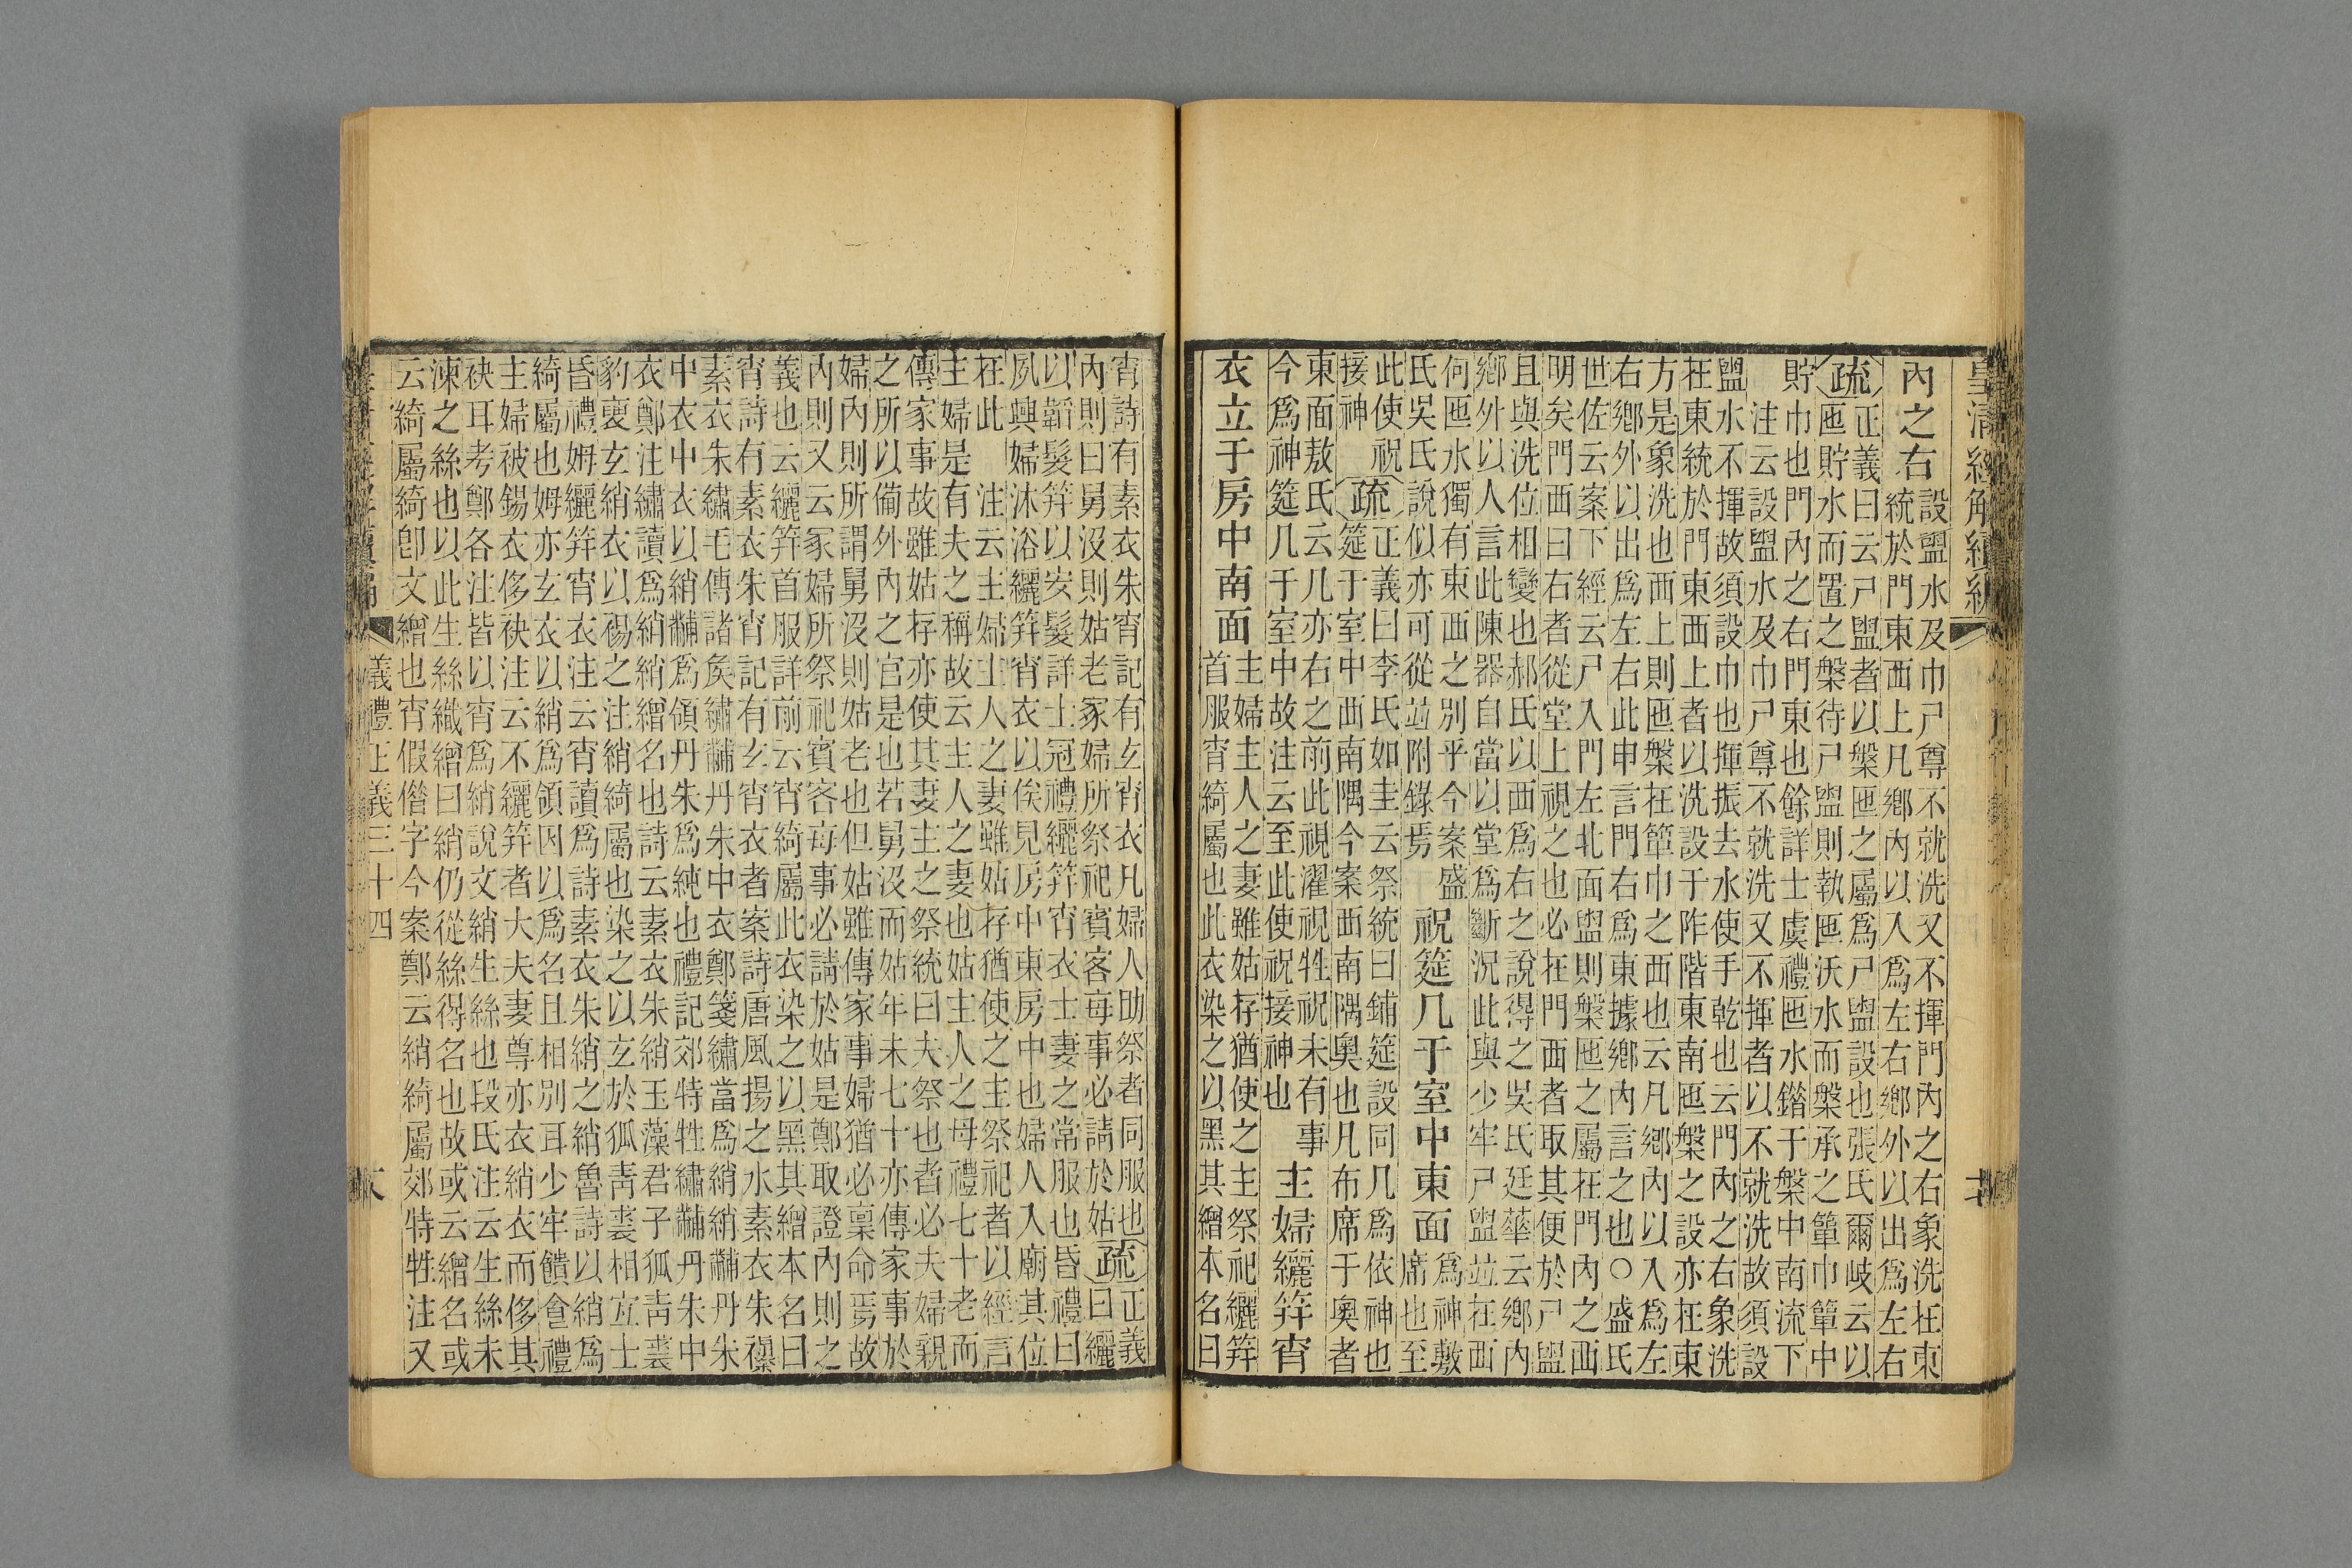 皇清經解續編
內之右
設盥水及巾尸尊不就洗又不揮門內之右象洗在東
統於門東西上凡鄉內以入爲左右鄉外以出爲左右
疏
正義曰云尸盥者以槃匜之屬爲尸盥設也張氏爾岐云以
匜貯水而置之槃待尸盥則執匜沃水而槃承之簞巾簞中
貯巾也門內之右門東也餘詳士虞禮匜水錯于槃中南流下
注云設盥水及巾尸尊不就洗又不揮者以不就洗故須設
盥水不揮故須設巾也揮振去水使手乾也云門內之右象洗
在東統於門東西上者以洗設于阼階東南匜槃之設亦在東
方是象洗也西上則匜槃在簞巾之西也云凡鄉內以入爲左
右鄉外以出爲左右此申言門右爲東據鄉內言之也○盛氏
世佐云案下經云尸入門左北面盥則槃匜之屬在門內之西
明矣門西曰右者從堂上視之也必在門西者取其便於尸盥
且與洗位相變也郝氏以西爲右之說得之吳氏廷華云鄉內
鄉外以人言此陳器自當以堂爲斷況此與少牢尸盥竝在西
何匜水獨有東西之別乎今案盛
氏吳氏說似亦可從竝附錄焉
祝筵几于室中東面
爲神敷
席也至
此使祝
接神
疏
正義曰李氏如圭云祭統曰鋪筵設同几爲依神也
筵于室中西南隅今案西南隅奧也凡布席于奧者
東面敖氏云几亦右之前此視濯視牲祝未有事
今爲神筵几于室中故注云至此使祝接神也
主婦纚笄宵
衣立于房中南面
主婦主人之妻雖姑存猶使之主祭祀纚笄
首服宵綺屬也此衣染之以黑其繒本名曰
宵詩有素衣朱宵記有玄宵衣凡婦人助祭者同服也
內則曰舅沒則姑老冢婦所祭祀賓客每事必請於姑
疏
正義
曰纚
以韜髮笄以安髮詳士冠禮纚笄宵衣士妻之常服也昏禮曰
夙興婦沐浴纚笄宵衣以俟見房中東房中也婦人入廟其位
在此 注云主婦主人之妻雖姑存猶使之主祭祀者以經言
主婦是有夫之稱故云主人之妻也姑主人之母禮七十老而
傳家事故雖姑存亦使其妻主之祭統曰夫祭也者必夫婦親
之所以備外內之官是也若舅沒而姑年未七十亦傳家事於
婦內則所謂舅沒則姑老也但姑雖傳家事婦猶必稟命焉故
內則又云冢婦所祭祀賓客每事必請於姑是鄭取證內則之
義也云纚笄首服詳前云宵綺屬此衣染之以黑其繒本名曰
宵詩有素衣朱宵記有玄宵衣者案詩唐風揚之水素衣朱襮
素衣朱繡毛傳諸侯繡黼丹朱中衣鄭箋繡當爲綃綃黼丹朱
中衣中衣以綃黼爲領丹朱爲純也禮記郊特牲繡黼丹朱中
衣鄭注繡讀爲綃綃繒名也詩云素衣朱綃玉藻君子狐青裘
豹褎玄綃衣以裼之注綃綺屬也染之以玄於狐青裘相宜士
昏禮姆纚笄宵衣注云宵讀爲詩素衣朱綃之綃魯詩以綃爲
綺屬也姆亦玄衣以綃爲領因以爲名且相別耳少牢饋食禮
主婦被錫衣侈袂注云不纚笄者大夫妻尊亦衣綃衣而侈其
袂耳考鄭各注皆以宵爲綃說文綃生絲也段氏注云生絲未
湅之絲也以此生絲織繒曰綃仍從絲得名也故或云繒名或
云綺屬綺卽文繒也宵假偕字今案鄭云綃綺屬郊特牲注又
義禮正義三十四